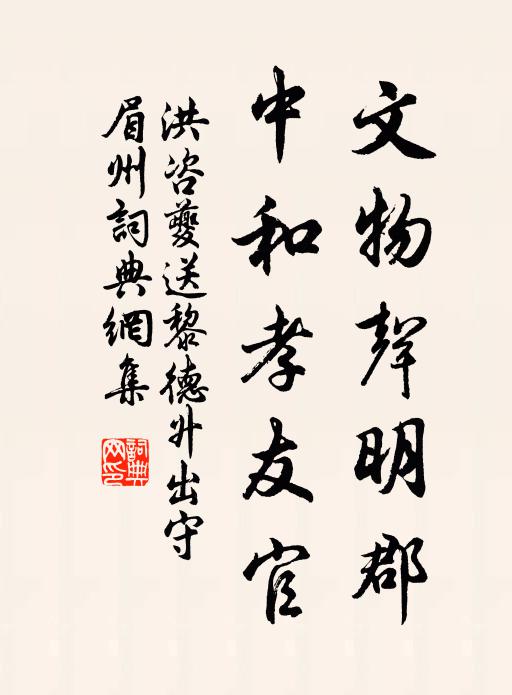 文物聲明郡
中和孝友官
洪咨夔送黎德升出守
眉州詞典網集
詞典網印